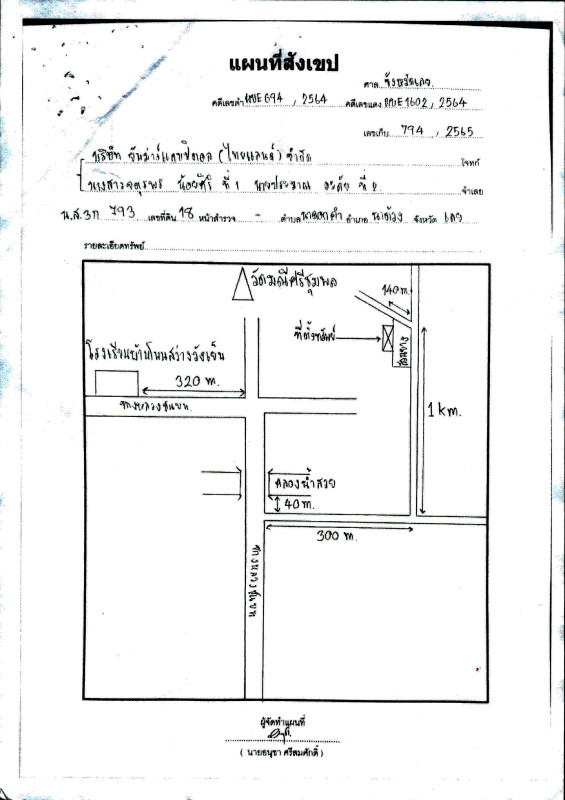 แผนที่สังเขป
ศาล จังหวัดเลย
คดีเลขดำ ผบE694 , 2564 คดีเลขแดง ผบE1602 , 2564
เลขเก็บ 794 , 2565
บริษัท (ไทยแลนด์) จำกัด โจทก์
นางสาวจตุรพร น้อยศิริ ที่ 1 นายประชาณ ที่ 2 จำเลย
น.ส.3ก 793 เลขที่ดิน 18 หน้าสำรวจ - ตำบล นาดอกคำ อำเภอ นาด้วง จังหวัด เลย
รายละเอียดทรัพย์
วัดมณีศรีชุมพล
140 m.
ที่ตั้งทรัพย์
สวนยาง
โรงเรียนบ้านโนนสว่างวังเย็น
320 m.
1 km.
ทางหลวงชนบท
คลองน้ำสวย
40 m.
300 m.
ทางหลวงชนบท
ผู้จัดทำแผนที่
( นายอนุชา ศรีสมศักดิ์ )